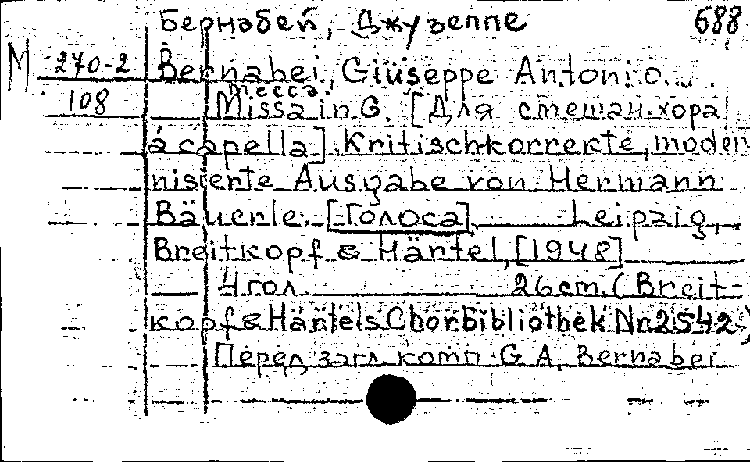 Бернабеи, Джузеппе 688
М 270-2 Bernabei, Giuseppe Antonio.
Месса,
108 Missa in G. [Для смешан. хора
a capella]. Kritischkorrekte, moder-
nisierte Ausgabe von Hermann
Bäuerle. [Голоса] Leipzig,
Breitkopf & Härtel, [1948]
4 гол. 26 cm. (Breit-
kopf & Härtels Chorbibliothek Nr. 2542)
Перед загл. комп. G. A. Bernabei